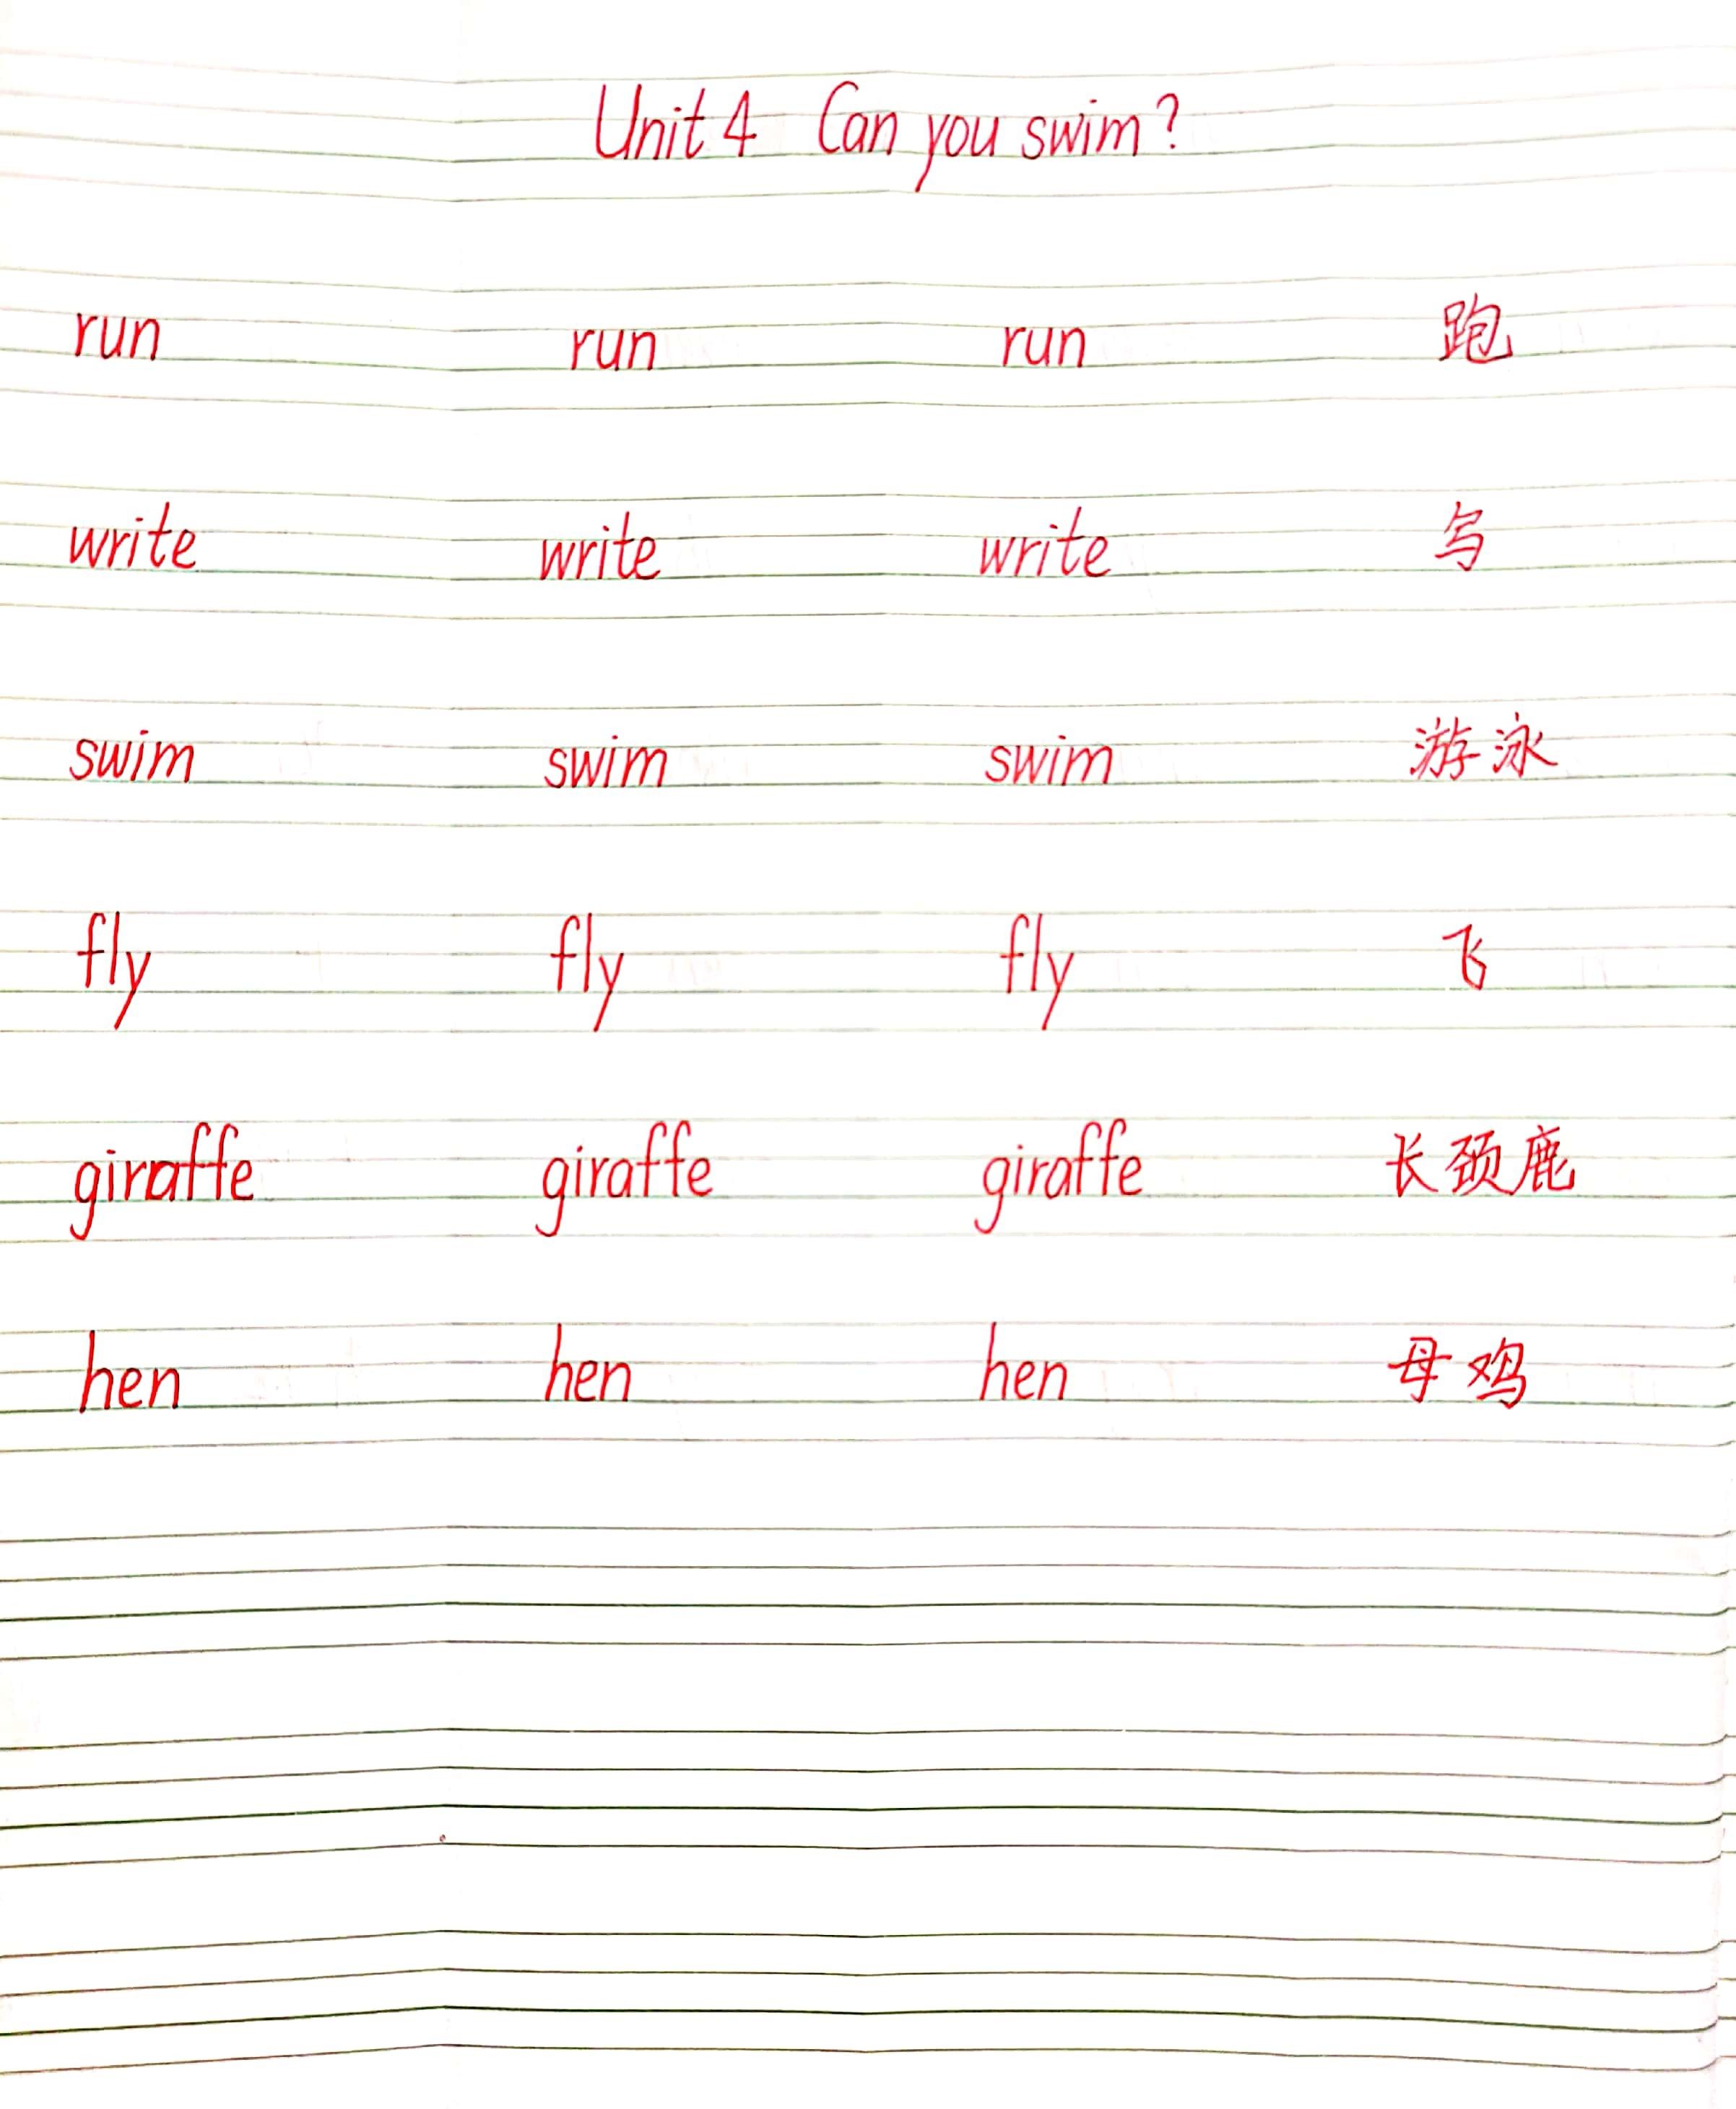 Unit 4 Can you swim?
run run run 跑
write write write 写
swim swim swim 游泳
fly fly fly 飞
giraffe giraffe giraffe 长颈鹿
hen hen hen 母鸡